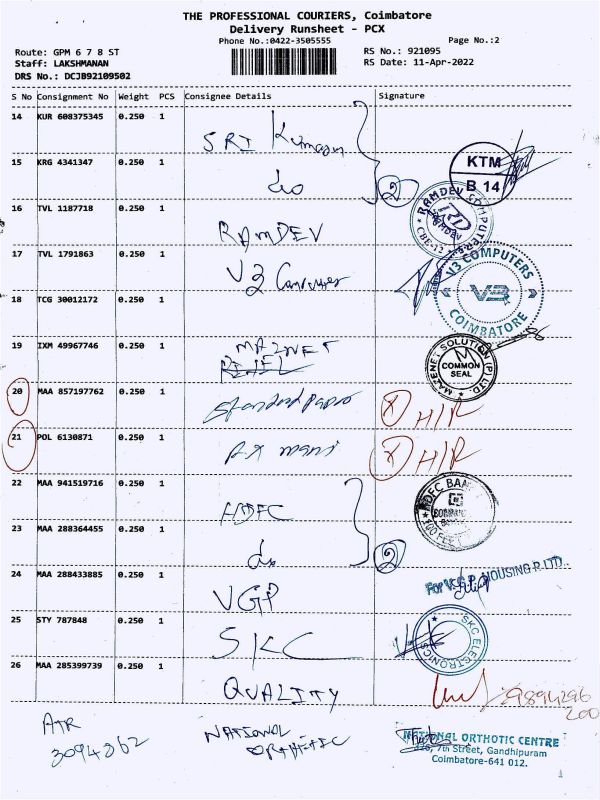 THE PROFESSIONAL COURIERS, Coimbatore
Delivery Runsheet - PCX
Phone No.:0422-3505555
Page No.:2
Route: GPM 6 7 8 ST
RS No.: 921095
Staff: LAKSHMANAN
RS Date: 11-Apr-2022
DRS No.: DCJB92109502
S No Consignment No Weight PCS Consignee Details Signature
14 KUR 608375345 0.250 1 SRI Kumaran
15 KRG 4341347 0.250 1 do 2
KTM
B 14
16 TVL 1187718 0.250 1 RAMDEV
RAMDEV COMPUTER
CBE-12
17 TVL 1791863 0.250 1 V3 Computer
V3 COMPUTERS
V3
COIMBATORE
18 TCG 30012172 0.250 1
19 IXM 49967746 0.250 1 MAZNET
MAZENET SOLUTION (P) LTD.
COMMON
SEAL
20 MAA 857197762 0.250 1 Standard papers H/R
21 POL 6130871 0.250 1 H/R
22 MAA 941519716 0.250 1 HDFC
HDFC BANK
100 FEET
23 MAA 288364455 0.250 1 do 2
24 MAA 288433885 0.250 1 VGP
For V.G.P. HOUSING P. LTD.
25 STY 787848 0.250 1 SKC
SKC ELECTRONICS
26 MAA 285399739 0.250 1 QUALITY
9894296
200
ATR
3094362
NATIONAL
ORTHETIC
NATIONAL ORTHOTIC CENTRE
7th Street, Gandhipuram
Coimbatore-641 012.